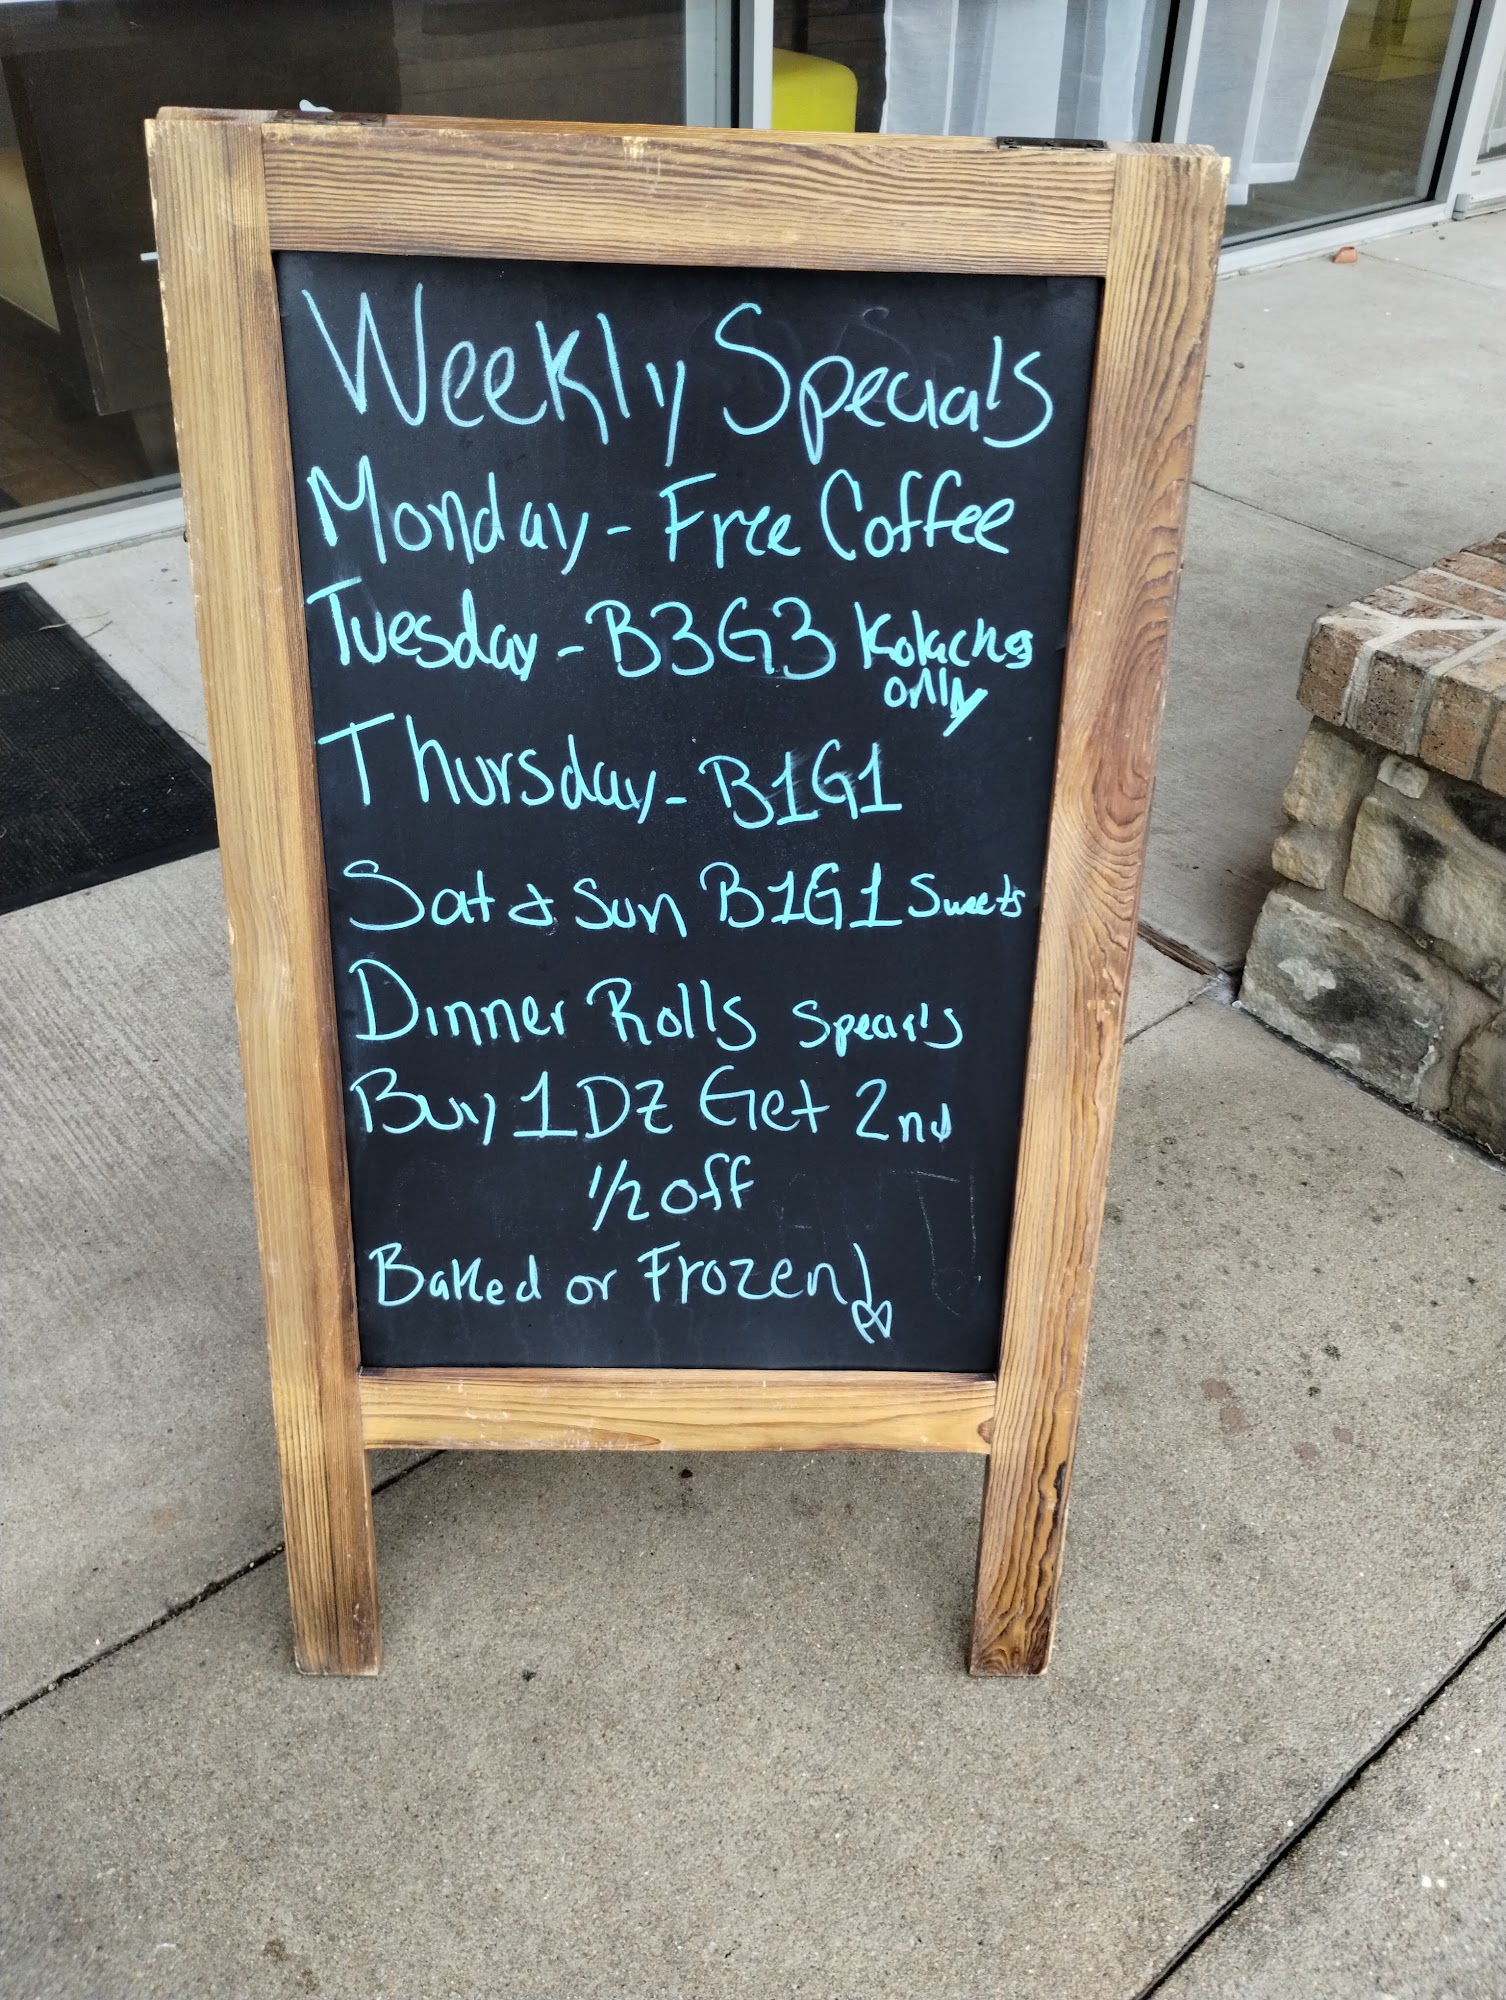 Weekly Specials
Monday - Free Coffee
Tuesday - B3G3 Kolaches
only
Thursday - B1G1
Sat & Sun B1G1 Sweets
Dinner Rolls Specials
Buy 1 DZ Get 2nd
1/2 off
Baked or Frozen!